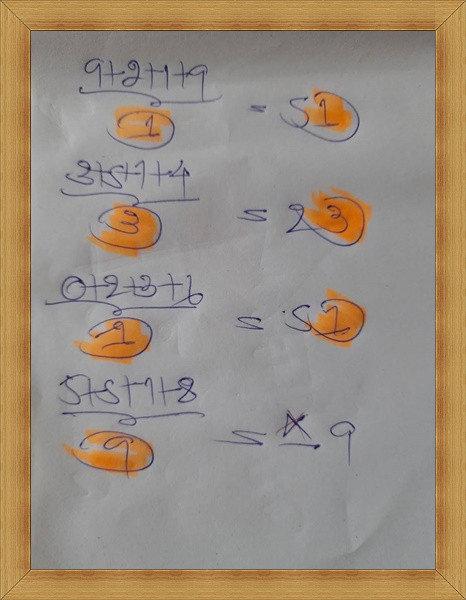 9+2+1+9
1 = 51
3+5+1+4
3 = 23
0+2+3+6
1 = 51
5+5+1+8
9 = X 9